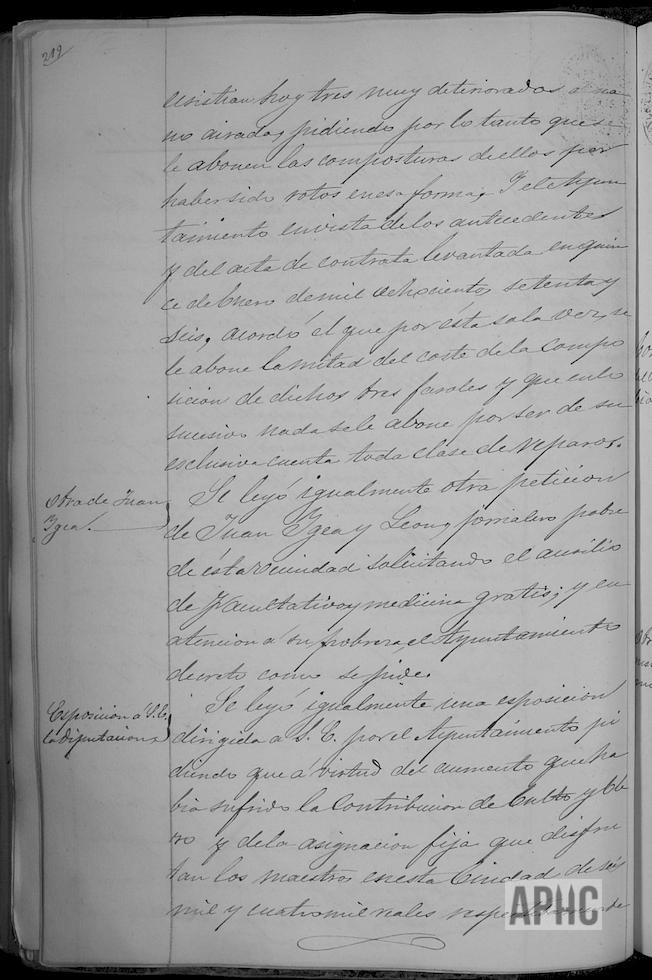 219
ecsistian hoy tres muy deteriorados á ma
no airada, pidiendo por lo tanto que se
le abonen las composturas de ellos por
haber sido rotos en esa forma; Y el Ayun
tamiento en vista de los antecedentes
y del acta de contrata levantada en quin
ce de Enero de mil ochocientos setenta y
seis, acordó el que por esta sola vez, se
le abone la mitad del coste de la compo
sicion de dichos tres faroles y que en lo
sucesivo nada se le abone por ser de su
esclusiva cuenta toda clase de reparos.
Otra de Juan
Ygea.
Se leyó igualmente otra peticion
de Juan Ygea y Leon, jornalero pobre
de ésta vecindad solicitando el ausilio
de Facultativo y medicina gratis; y en
atencion á su pobreza, el Ayuntamiento
decretó como se pide.
Esposicion á S.E.
la Diputacion
Se leyó igualmente una esposicion
dirigida a S. E. por el Ayuntamiento pi
diendo que á virtud del aumento que ha
bia sufrido la Contribucion de Culto y Cle
ro y de la asignacion fija que disfru
tan los maestros en esta Ciudad de seis
mil y cuatro mil reales
APHC